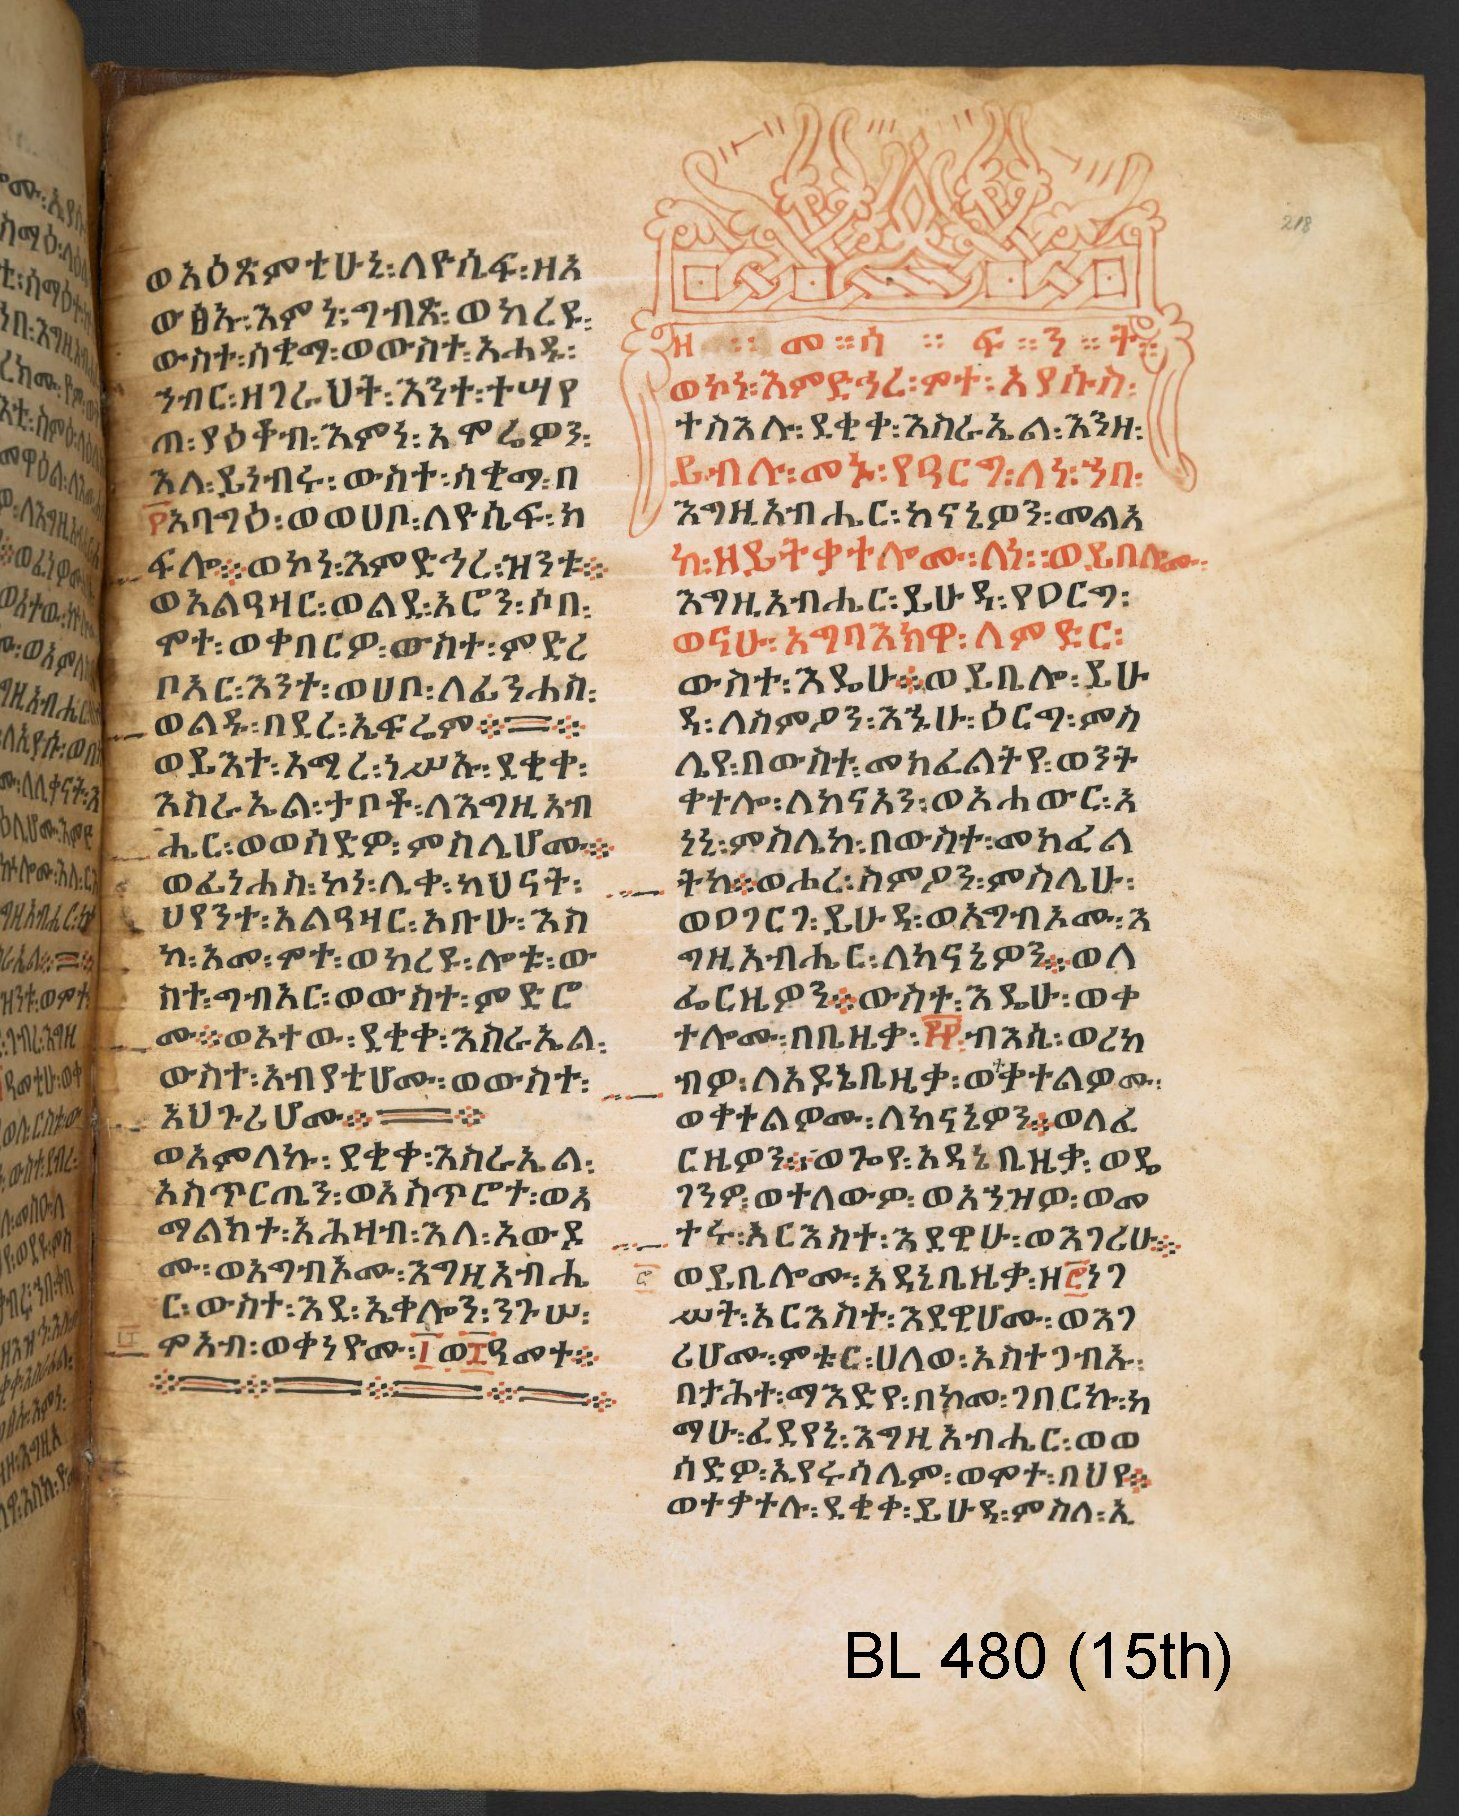 ወአዕጽምቲሁኒ፡ለዮሴፍ፡ዘአ
ውፅኡ፡እምነ፡ግብጽ፡ወከረዩ፡
ውስተ፡ሰቂማ፡ወውስተ፡አሓዱ፡
ኅብር፡ዘገራህት፡እንተ፡ተሣየ
ጠ፡ያዕቆብ፡እምነ፡አሞሬዎን፡
እለ፡ይነብሩ፡ውስተ፡ሰቂማ፡በ
፻አባግዕ፡ወወሀቦ፡ለዮሴፍ፡ክ
ፍሎ፨ወኮነ፡እምድኅረ፡ዝንቱ፨
ወአልዓዛር፡ወልደ፡አሮን፡ሶበ፡
ሞተ፡ወቀበርዎ፡ውስተ፡ምድረ
ቦአር፡እንተ፡ወሀቦ፡ለፊንሐስ፡
ወልዱ፡በደረ፡ኤፍሬም፨
ወይእተ፡አሚረ፡ነሥኡ፡ደቂቀ፡
እስራኤል፡ታቦቶ፡ለእግዚአብ
ሔር፡ወወሰድዎ፡ምስሌሆሙ፨
ወፊነሐስ፡ኮነ፡ሊቀ፡ካህናት፡
ህየንተ፡አልዓዛር፡አቡሁ፡እስ
ከ፡አመ፡ሞተ፡ወከረዩ፡ሎቱ፡ው
ስተ፡ግብአር፡ወውስተ፡ምድሮ
ሙ፨ወአተው፡ደቂቀ፡እስራኤል፡
ውስተ፡አብያቲሆሙ፡ወውስተ፡
አህጉሪሆሙ፨
ወአምለኩ፡ደቂቀ፡እስራኤል፡
አስጥርጤን፡ወአስጥሮተ፡ወአ
ማልክተ፡አሕዛብ፡እለ፡አውደ
ሙ፡ወአግብኦሙ፡እግዚአብሔ
ር፡ውስተ፡እደ፡ኤቀሎን፡ንጉሠ፡
ሞአብ፡ወቀነዮሙ፡፲ወ፰ዓመተ፨
ዘ፡፡መ፡፡ሳ፡፡ፍ፡፡ን፡፡ት፡፡
ወኮነ፡እምድኅረ፡ሞተ፡እያሱስ፡
ተስእሉ፡ደቂቀ፡እስራኤል፡እንዘ፡
ይብሉ፡መኑ፡የዓርግ፡ለነ፡ኀበ፡
እግዚአብሔር፡ከናኔዎን፡መልአ
ከ፡ዘይትቃተሎሙ፡ለነ፡ወይቤሎሙ፡
እግዚአብሔር፡ይሁዳ፡የዐርግ፡
ወናሁ፡አግባእክዋ፡ለምድር፡
ውስተ፡እዴሁ፨ወይቤሎ፡ይሁ
ዳ፡ለስምዖን፡እኁሁ፡ዕርግ፡ምስ
ሌየ፡በውስተ፡መክፈልትየ፡ወንት
ቀተሎ፡ለከናአን፡ወአሐውር፡አ
ነኒ፡ምስሌከ፡በውስተ፡መክፈል
ትከ፨ወሖረ፡ስምዖን፡ምስሌሁ፡
ወዐገርገ፡ይሁዳ፡ወአግብኦሙ፡እ
ግዚአብሔር፡ለከናኔዎን፨ወለ
ፌርዜዎን፨ውስተ፡እዴሁ፡ወቀ
ተሎሙ፡በቤዜቃ፡፻፻፡ብእሴ፡ወረከ
ብዎ፡ለአዶኔቤዜቃ፡ወተቃተልዎሙ፡
ወቀተልዎሙ፡ለከናኔዎን፨ወለፈ
ርዜዎን፨ወጐየ፡አዳኔቤዜቃ፡ወዴ
ገንዎ፡ወተለውዎ፡ወአኀዝዎ፡ወመ
ተሩ፡አርእስተ፡እደዊሁ፡ወእገሪሁ፨
ወይቤሎሙ፡አዳኒቤዜቃ፡ዘ፸ነገ
ሥት፡አርእስተ፡እደዊሆሙ፡ወእገ
ሪሆሙ፡ምቱር፡ሀለወ፡አስተጋብኡ፡
በታሕተ፡ማእድየ፡በከመ፡ገበርኩ፡ከ
ማሁ፡ፈደየኒ፡እግዚአብሔር፡ወወ
ሰድዎ፡ኢየሩሳሌም፡ወሞተ፡በህየ፨
ወተቃተሉ፡ደቂቀ፡ይሁዳ፡ምስለ፡ኢ
218
BL 480 (15th)